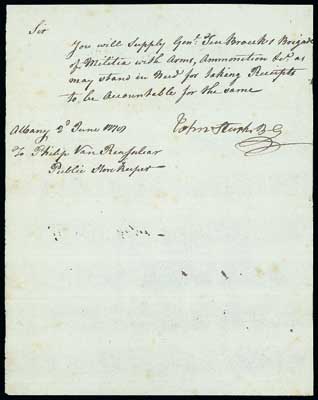 Sir
You will Supply Genl. Ten Broecks Brigade
of Militia with Arms, Ammonition &c. as
may stand in Need for taking Receipts
to be Accountable for the same
John Stark B. G
Albany 2d June 1778
To Philip Van Rensselear
Public Storekeeper